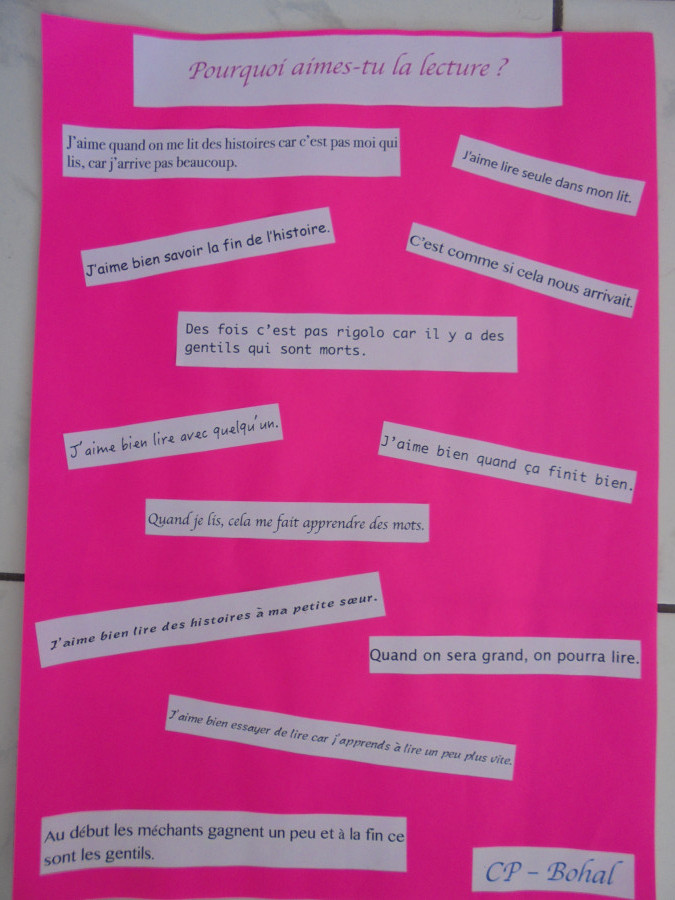 Pourquoi aimes-tu la lecture ?
J'aime quand on me lit des histoires car c'est pas moi qui
lis, car j'arrive pas beaucoup.
J'aime lire seule dans mon lit.
J'aime bien savoir la fin de l'histoire.
C'est comme si cela nous arrivait.
Des fois c'est pas rigolo car il y a des
gentils qui sont morts.
J'aime bien lire avec quelqu'un.
J'aime bien quand ça finit bien.
Quand je lis, cela me fait apprendre des mots.
J'aime bien lire des histoires à ma petite sœur.
Quand on sera grand, on pourra lire.
J'aime bien essayer de lire car j'apprends à lire un peu plus vite.
Au début les méchants gagnent un peu et à la fin ce
sont les gentils.
CP – Bohal